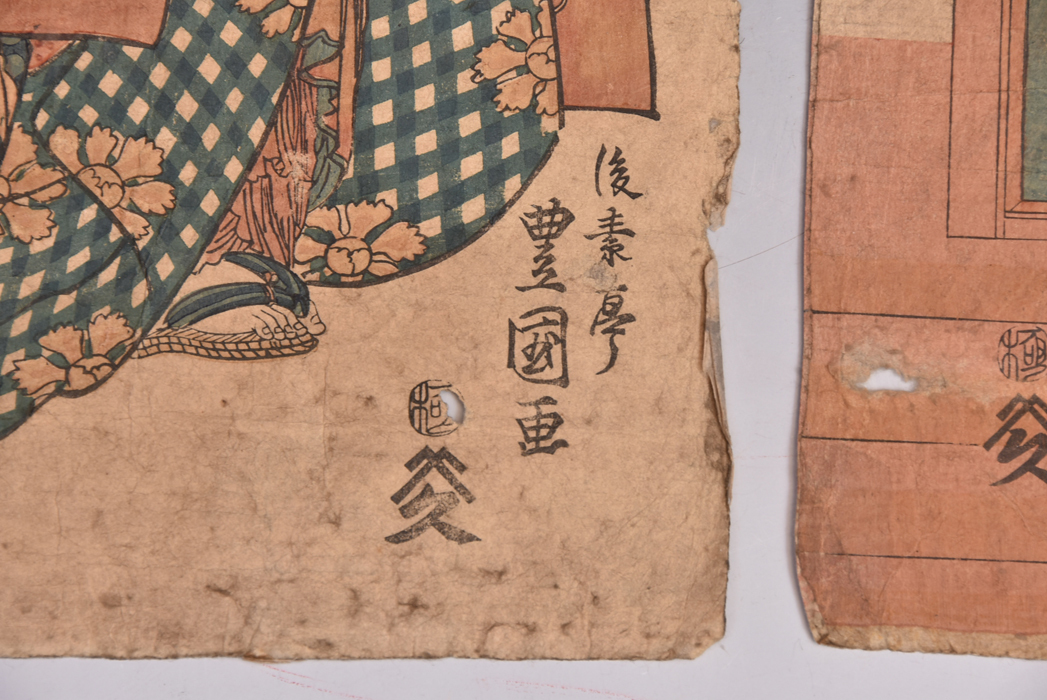 後素亭
豊國画
極
久
極
久